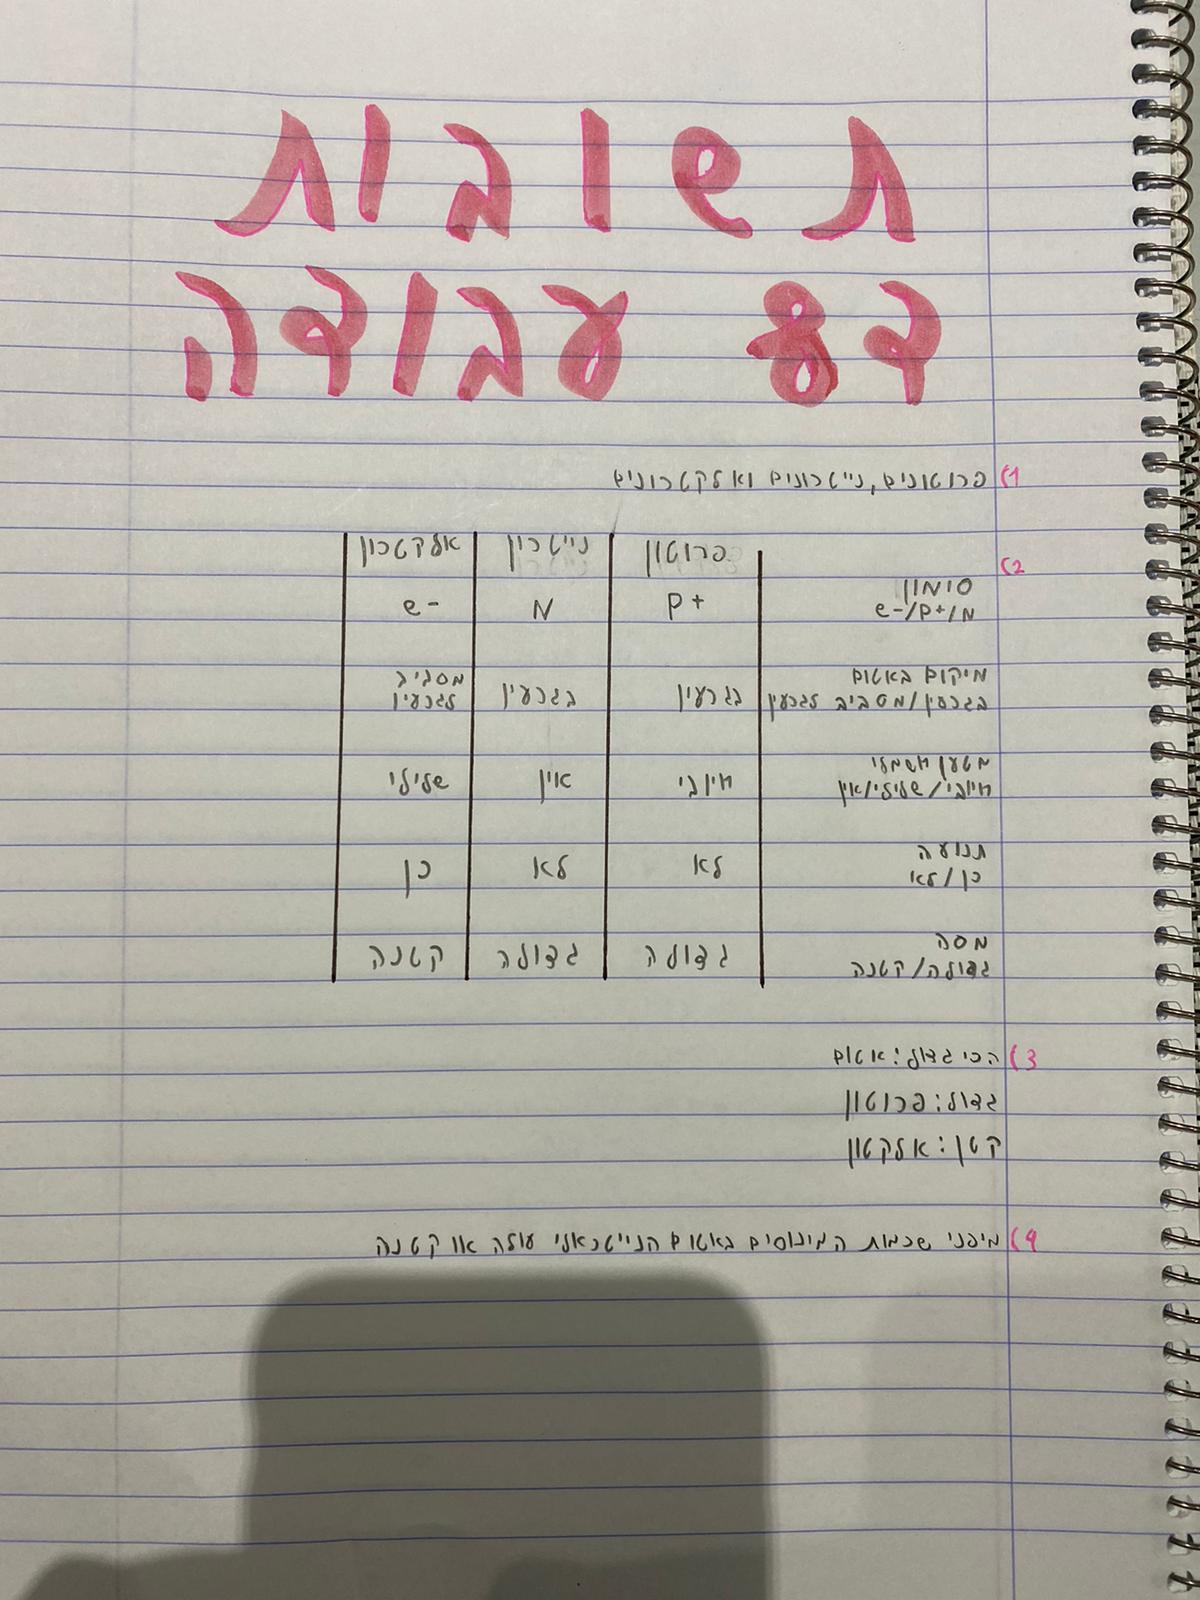 תשובות
דף עבודה
1) פרוטונים, נייטרונים ואלקטרונים
2)
פרוטון נייטרון אלקטרון
סימון
מ/+p/-e
p+ מ e-
מיקום באטום
בגרעין/מסביב לגרעין
בגרעין בגרעין מסביב לגרעין
מטען חשמלי
חיובי/שלילי/אין
חיובי אין שלילי
תנועה
כן/לא
לא לא כן
מסה
גדולה/קטנה
גדולה גדולה קטנה
3) הכי גדול: אטום
גדול: פרוטון
קטן: אלקטון
4) מיפני שכמות המינוסים באטום הנייטראלי עולה או קטנה